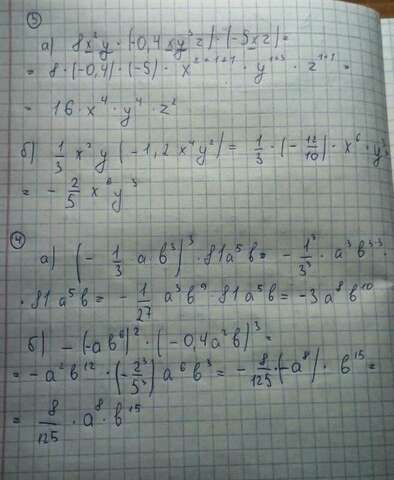 ③
а) 8x²y · (-0,4xy³z) · (-5xz) =
= 8 · (-0,4) · (-5) · x²⁺¹⁺¹ · y¹⁺³ · z¹⁺¹ =
= 16 · x⁴ · y⁴ · z²
б) 1/3 x²y (-1,2x⁴y²) = 1/3 · (-12/10) · x⁶ · y³
= -2/5 x⁶y³
④
а) (-1/3 · a · b³)³ · 81a⁵b = -1³/3³ · a³b³·³ ·
· 81a⁵b = -1/27 a³b⁹ · 81a⁵b = -3a⁸b¹⁰
б) -(-ab⁶)² · (-0,4a²b)³ =
= -a²b¹² · (-2³/5³) a⁶b³ = -8/125 · (-a⁸) · b¹⁵ =
= 8/125 · a⁸ · b¹⁵